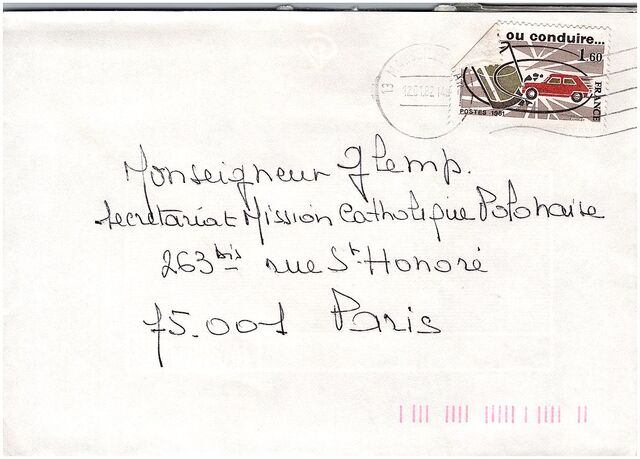 ou conduire...
1,60
FRANCE
POSTES 1981
Monseigneur Glemp.
Secretariat Mission Catholique Polonaise
263 bis rue St. Honoré
75.001 Paris